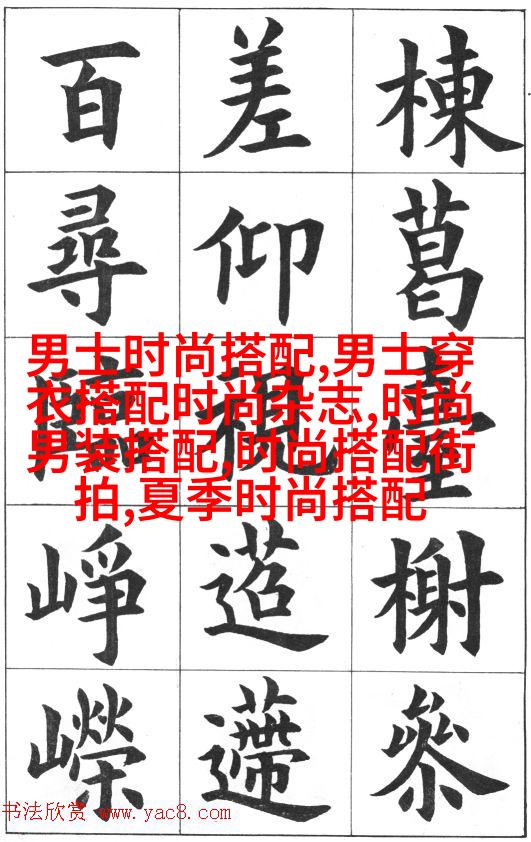 棟葛臺榭參
差仰視
百尋崢嶸
男士时尚搭配,男士穿
衣搭配时尚杂志,时尚
男装搭配,时尚搭配街
拍,夏季时尚搭配
书法欣赏 www.yac8.com